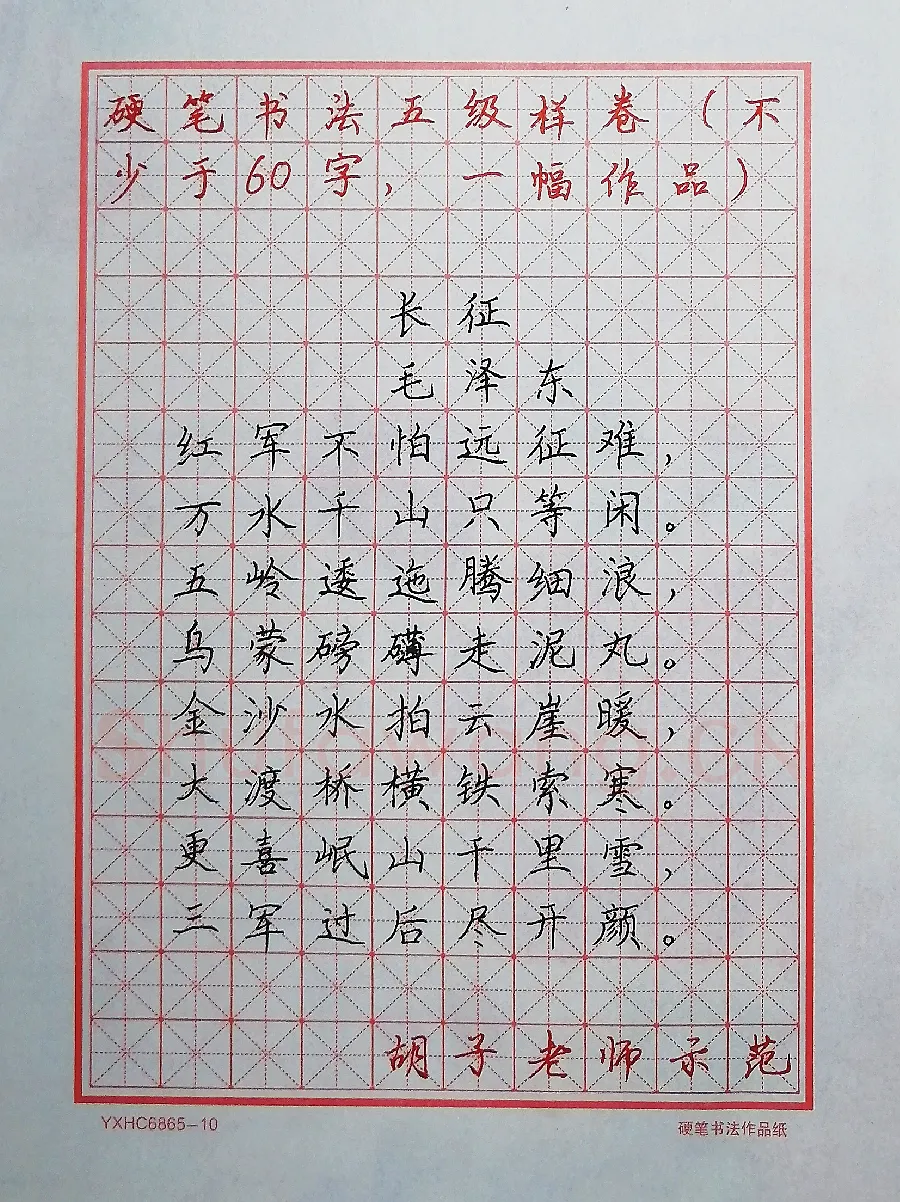 硬笔书法五级样卷（不
少于60字，一幅作品）
长征
毛泽东
红军不怕远征难，
万水千山只等闲。
五岭逶迤腾细浪，
乌蒙磅礴走泥丸。
金沙水拍云崖暖，
大渡桥横铁索寒。
更喜岷山千里雪，
三军过后尽开颜。
胡子老师示范
YXHC6865-10
硬笔书法作品纸